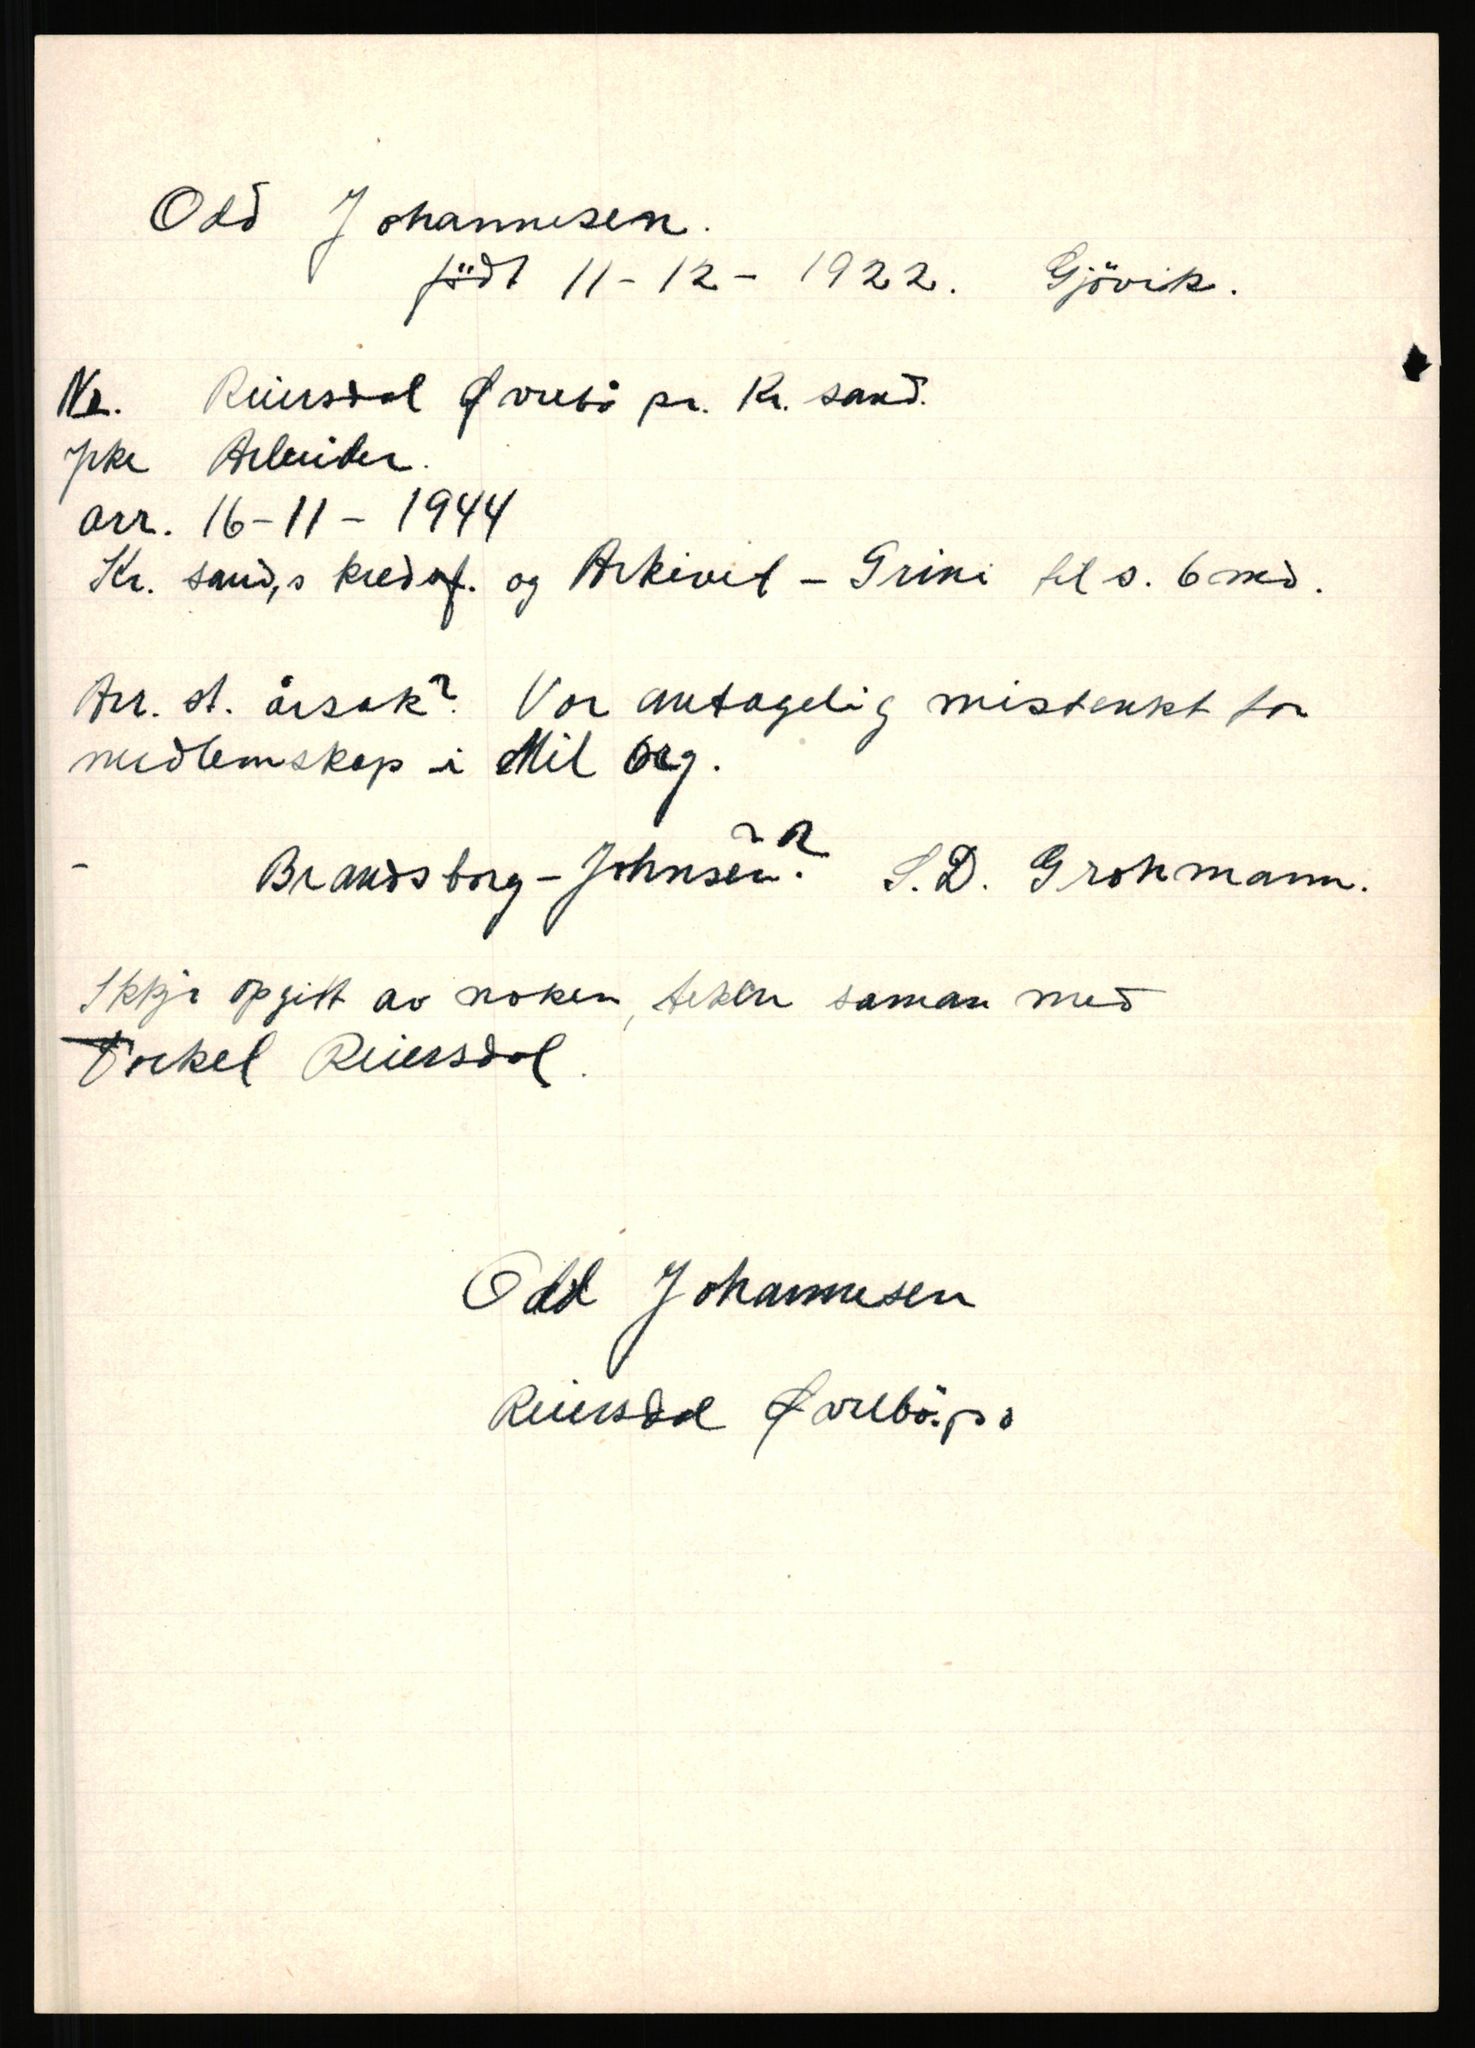 Odd Johannesen.
födt 11-12-1922. Gjövik.
No. Reiersdal Øvrebö pr. Kr. sand.
Yke Arbeider.
arr. 16-11-1944
Kr. sand,s kredsf. og Arkivet - Grini til s. 6 md.
Arr. st. årsak? Var antagelig mistenkt for
medlemskap i Mil org.
- Brandsborg - Johnsen?? S.D. Grohmann.
Ikkje opgitt av noken, teken saman med
Torkel Reiersdal.
Odd Johannesen
Reiersdal Øvrebö. p o